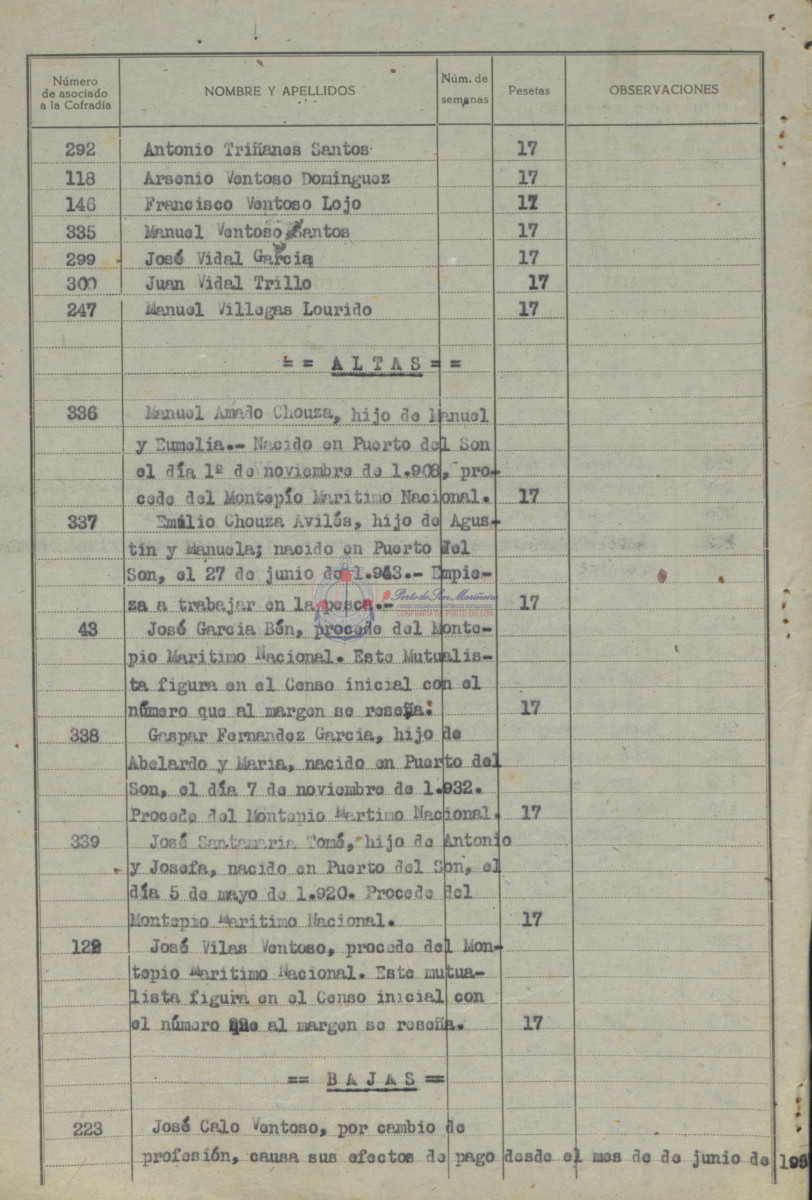 Número de asociado a la Cofradía NOMBRE Y APELLIDOS Núm. de semanas Pesetas OBSERVACIONES
292 Antonio Triñanes Santos 17
118 Arsenio Ventoso Dominguez 17
146 Francisco Ventoso Lojo 17
335 Manuel Ventoso Santos 17
299 José Vidal Garcia 17
300 Juan Vidal Trillo 17
247 Manuel Villegas Lourido 17
= = A L T A S = =
336 Manuel Amado Chouza, hijo de Manuel
y Eumelia.- Nacido en Puerto del Son
el día 1º de noviembre de 1.908, pro-
cede del Montepío Maritimo Nacional. 17
337 Emilio Chouza Avilés, hijo de Agus-
tín y Manuela; nacido en Puerto del
Son, el 27 de junio de 1.943.- Empie-
za a trabajar en la pesca.- 17
43 José Garcia Bén, procede del Monte-
pio Maritimo Nacional. Este Mutualis-
ta figura en el Censo inicial con el
número que al margen se reseña. 17
338 Gaspar Fernandez Garcia, hijo de
Abelardo y Maria, nacido en Puerto del
Son, el día 7 de noviembre de 1.932.
Procede del Montepio Martimo Nacional. 17
339 José Santamaria Tomé, hijo de Antonio
y Josefa, nacido en Puerto del Son, el
día 5 de mayo de 1.920. Procede del
Montepio Maritimo Nacional. 17
122 José Vilas Ventoso, procede del Mon-
tepio Maritimo Nacional. Este mutua-
lista figura en el Censo inicial con
el número que al margen se reseña. 17
== B A J A S ==
223 José Calo Ventoso, por cambio de
profesión, causa sus efectos de pago desde el mes de de junio de
Porto do Son Mariñeiro